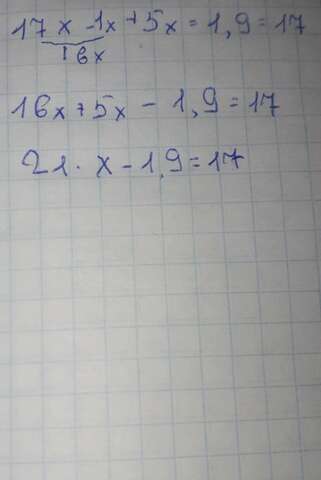 17x - 1x + 5x = 1,9 = 17
16x
16x + 5x - 1,9 = 17
21 · x - 1,9 = 17